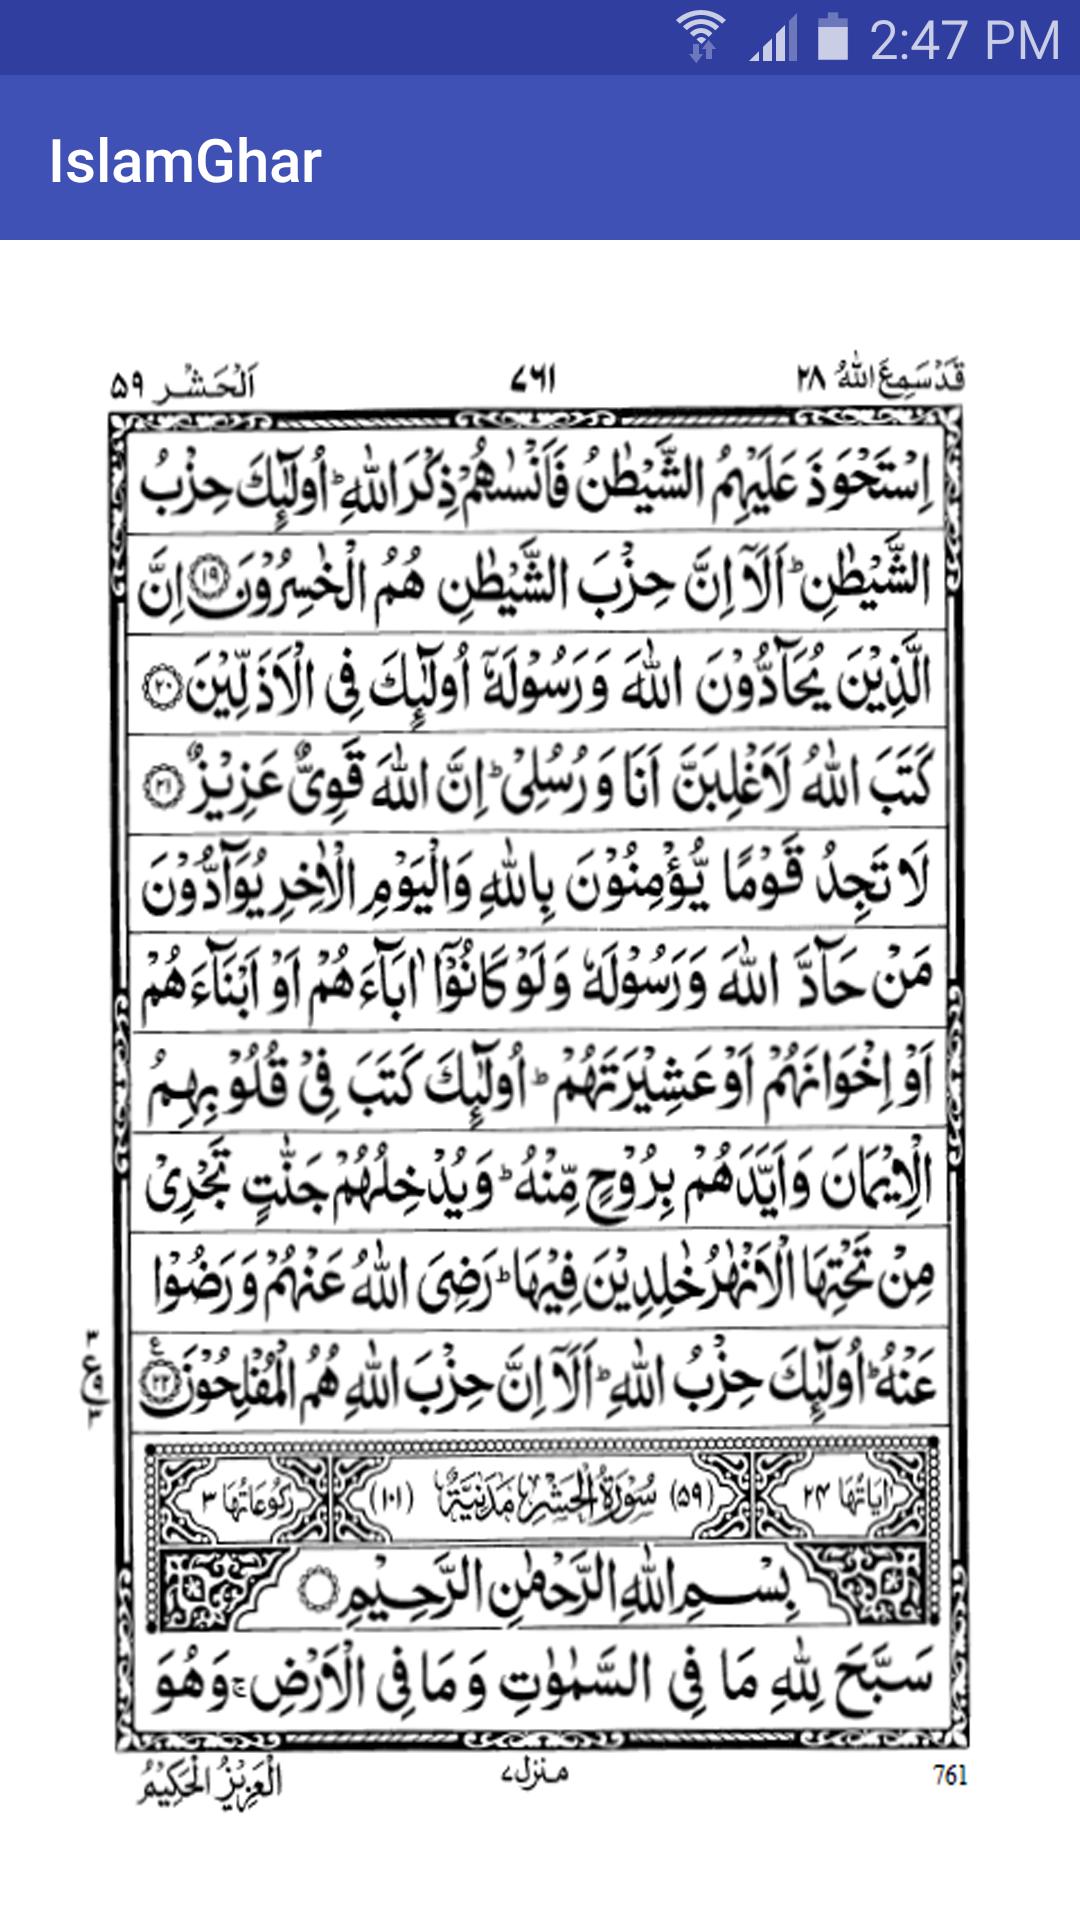 2:47 PM
IslamGhar
قَدْ سَمِعَ اللّٰهُ ۲۸
۷۶۱
اَلْحَشْر ۵۹
اِسْتَحْوَذَ عَلَيْهِمُ الشَّيْطٰنُ فَاَنْسٰىهُمْ ذِكْرَ اللّٰهِ ؕ اُولٰٓئِكَ حِزْبُ
الشَّيْطٰنِ ؕ اَلَاۤ اِنَّ حِزْبَ الشَّيْطٰنِ هُمُ الْخٰسِرُوْنَ ۱۹ اِنَّ
الَّذِيْنَ يُحَآدُّوْنَ اللّٰهَ وَرَسُوْلَهٗۤ اُولٰٓئِكَ فِى الْاَذَلِّيْنَ ۲۰
كَتَبَ اللّٰهُ لَاَغْلِبَنَّ اَنَا وَرُسُلِىْ ؕ اِنَّ اللّٰهَ قَوِىٌّ عَزِيْزٌ ۲۱
لَا تَجِدُ قَوْمًا يُّؤْمِنُوْنَ بِاللّٰهِ وَالْيَوْمِ الْاٰخِرِ يُوَآدُّوْنَ
مَنْ حَآدَّ اللّٰهَ وَرَسُوْلَهٗ وَلَوْ كَانُوْۤا اٰبَآءَهُمْ اَوْ اَبْنَآءَهُمْ
اَوْ اِخْوَانَهُمْ اَوْ عَشِيْرَتَهُمْ ؕ اُولٰٓئِكَ كَتَبَ فِىْ قُلُوْبِهِمُ
الْاِيْمَانَ وَاَيَّدَهُمْ بِرُوْحٍ مِّنْهُ ؕ وَيُدْخِلُهُمْ جَنّٰتٍ تَجْرِىْ
مِنْ تَحْتِهَا الْاَنْهٰرُ خٰلِدِيْنَ فِيْهَا ؕ رَضِىَ اللّٰهُ عَنْهُمْ وَرَضُوْا
عَنْهُ ؕ اُولٰٓئِكَ حِزْبُ اللّٰهِ ؕ اَلَاۤ اِنَّ حِزْبَ اللّٰهِ هُمُ الْمُفْلِحُوْنَ ۲۲ ع
۳
ع ۹
۳
اٰيَاتُهَا ۲۴ (۵۹) سُوْرَةُ الْحَشْرِ مَدَنِيَّةٌ (۱۰۱) رُكُوْعَاتُهَا ۳
بِسْمِ اللّٰهِ الرَّحْمٰنِ الرَّحِيْمِ
سَبَّحَ لِلّٰهِ مَا فِى السَّمٰوٰتِ وَمَا فِى الْاَرْضِ ۚ وَهُوَ
761
منزل ۷
الْعَزِيْزُ الْحَكِيْمُ